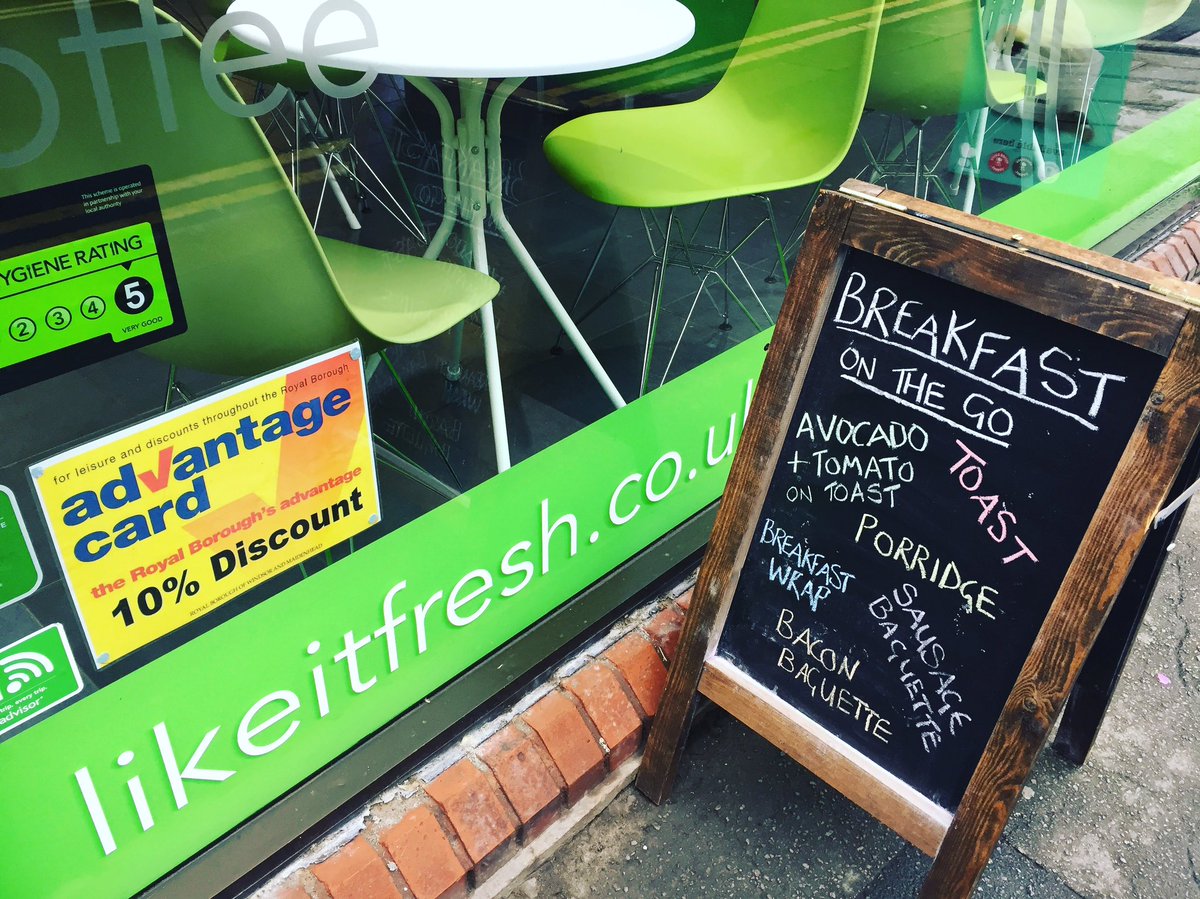 offee
This scheme is operated
in partnership with your
local authority
YGIENE RATING
2 3 4 5
VERY GOOD
for leisure and discounts throughout the Royal Borough
advantage
card
the Royal Borough's advantage
10% Discount
ROYAL BOROUGH OF WINDSOR AND MAIDENHEAD
trip, every trip.
advisor
likeitfresh.co.uk
BREAKFAST
ON THE GO
AVOCADO
+ TOMATO
ON TOAST
TOAST
PORRIDGE
BREAKFAST
WRAP
SAUSAGE
BAGUETTE
BACON
BAGUETTE